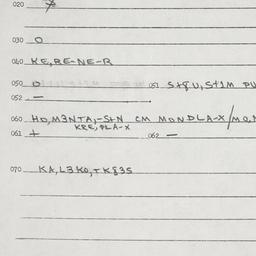 020
030 O
040 KE,RE-NE-R
050 O 051 S+8U,S+1M PU
052 —
060 HO,M3NTA,-S+N CM MONDLA-X/MO,
KRE,PLA-X
061 + 062 —
070 KA,L3KO,TK835